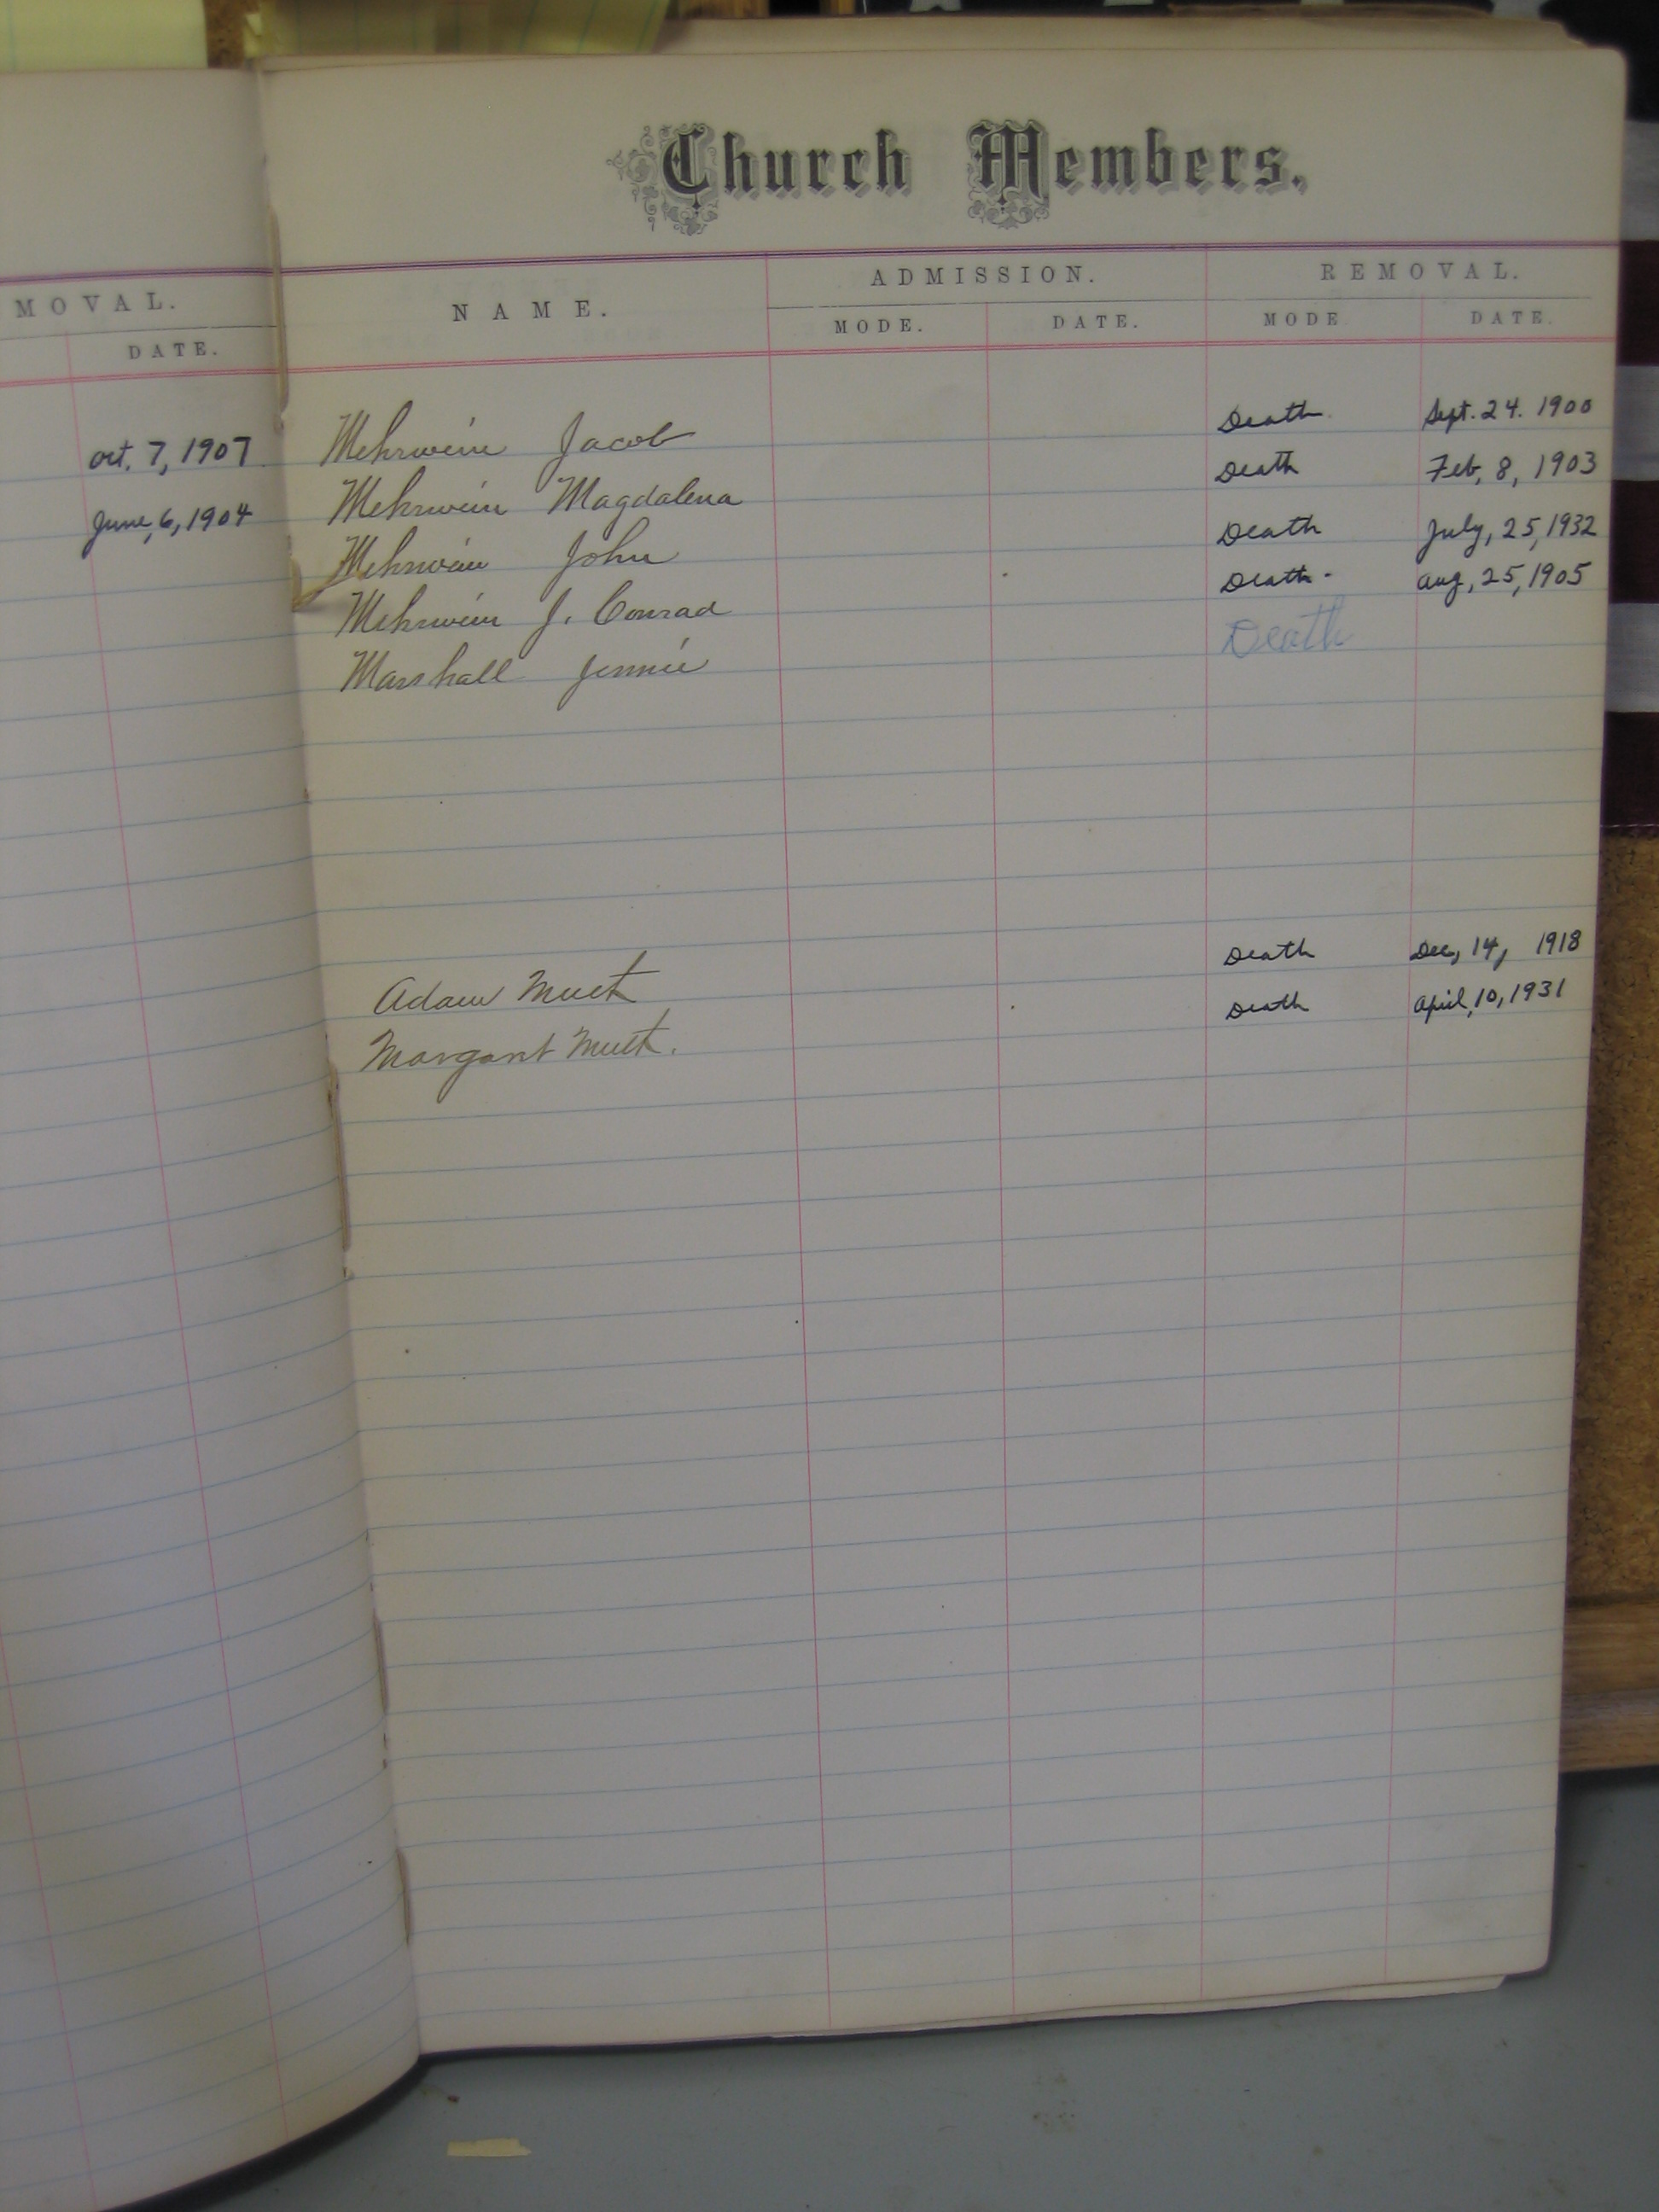 Church Members.
MOVAL.
DATE.
oct. 7, 1907
June, 6, 1904
NAME. ADMISSION. REMOVAL.
MODE. DATE. MODE DATE.
Mehrwein Jacob Death. Sept. 24. 1900
Mehrwein Magdalena Death Feb, 8, 1903
Mehrwein John Death July, 25, 1932
Mehrwein J. Conrad Death. Aug, 25, 1905
Marshall Jennie Death
Adam Muth Death Dec, 14, 1918
Margaret Muth. Death April, 10, 1931